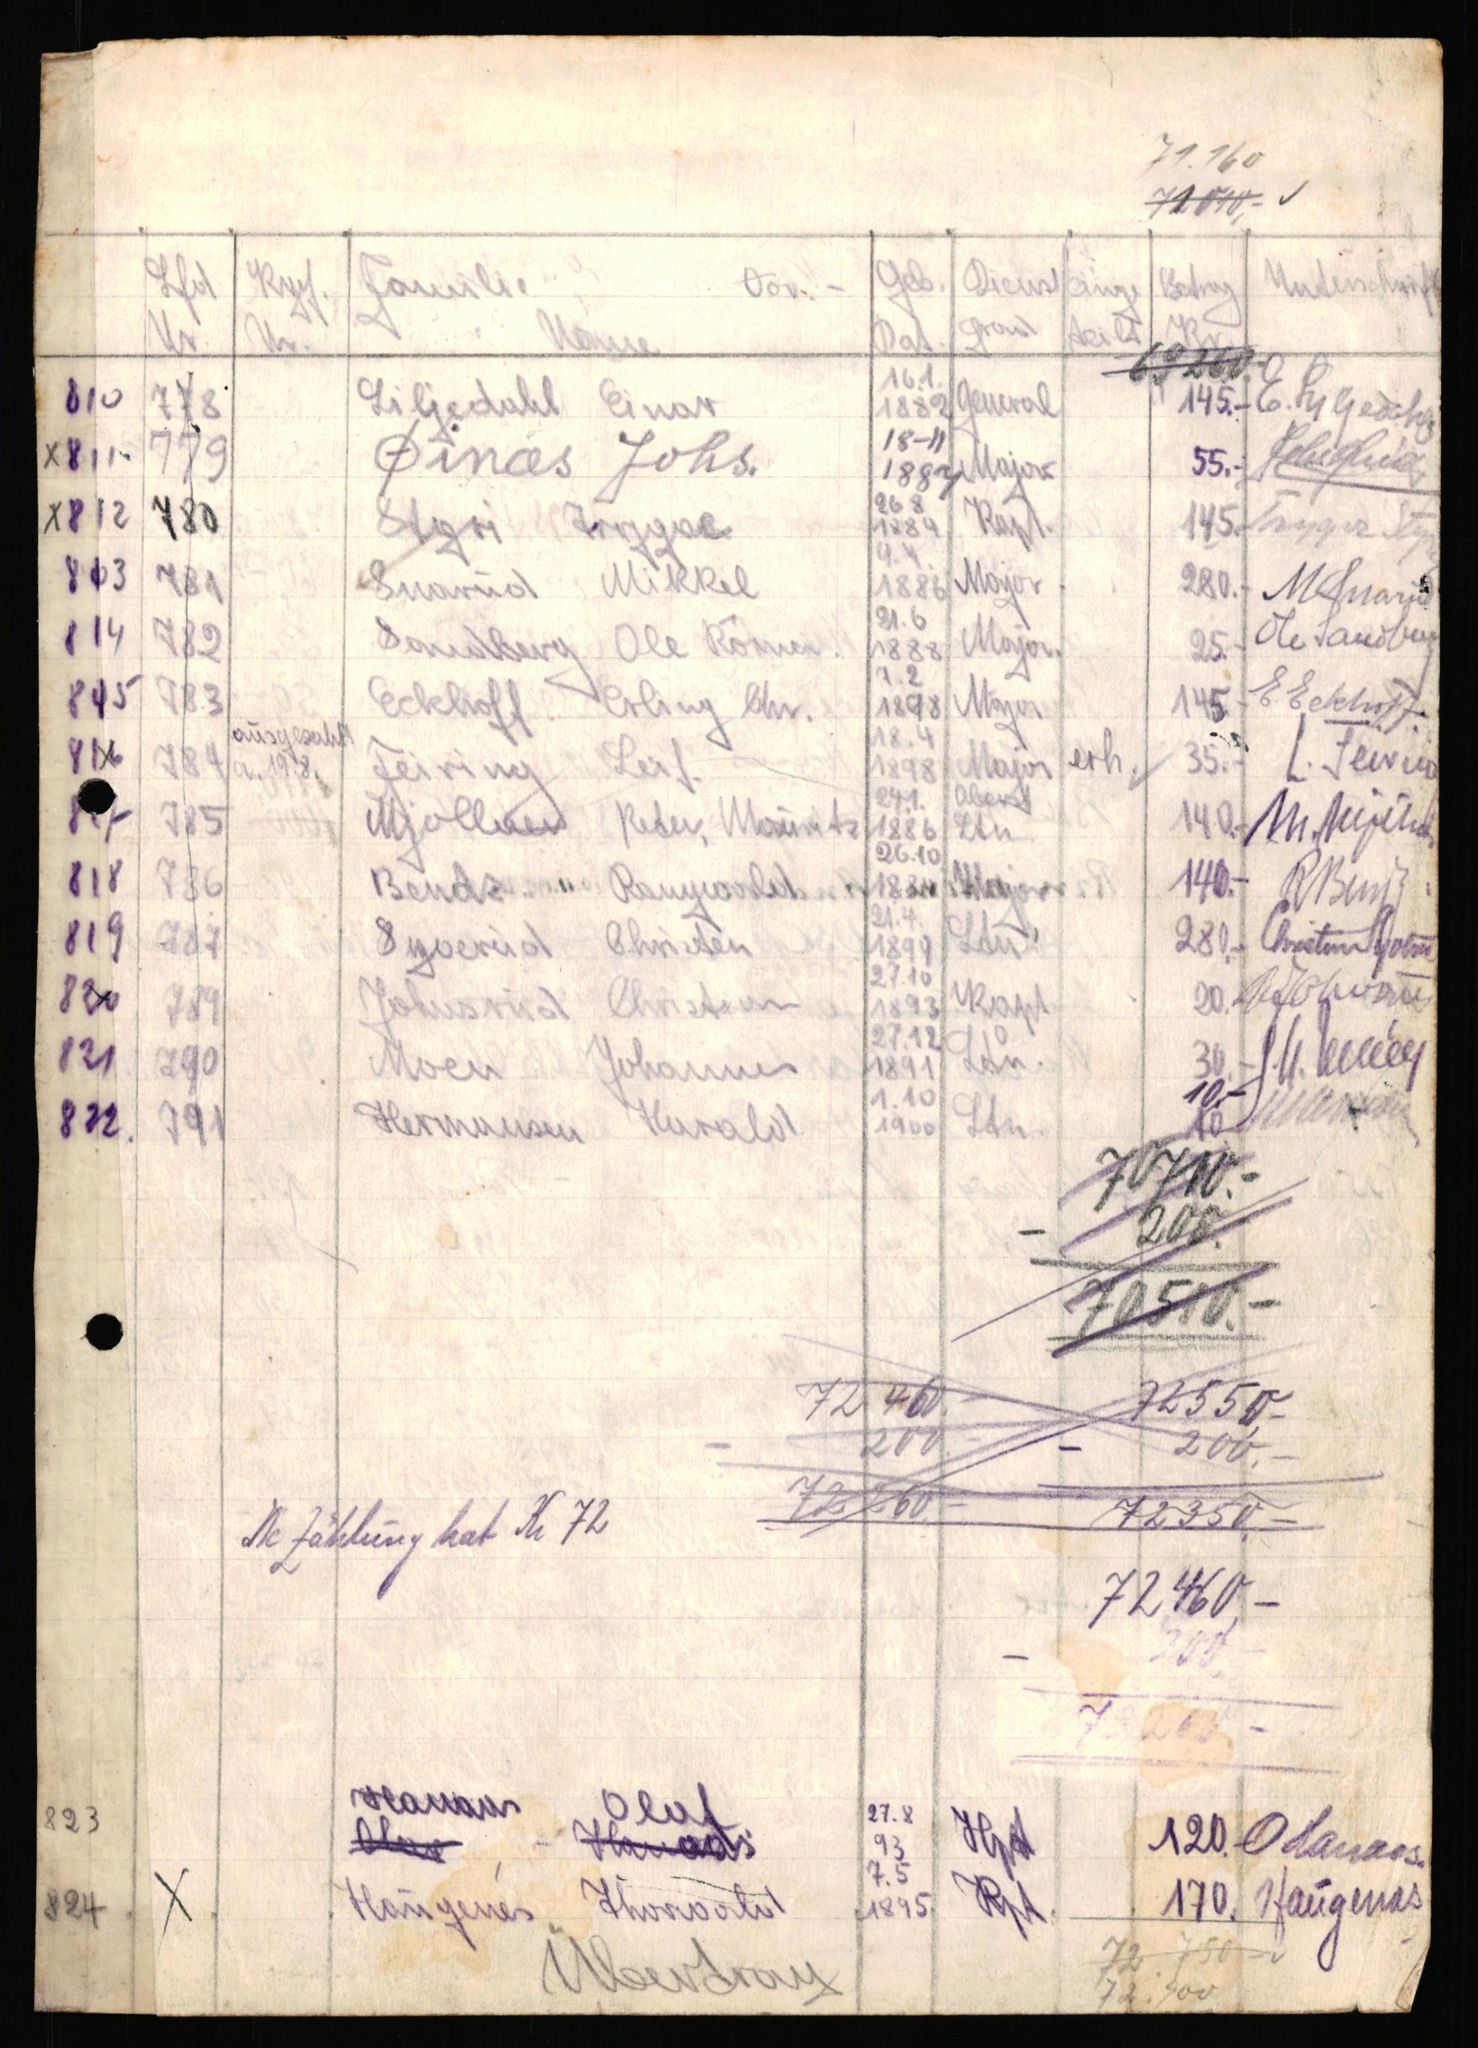 71.160
72010,- ✓
Lfd Kgf. Familie Vor. - Geb. Dienst einge Betrag Unterschrift
Nr. Nr. Name Dat. grad teilt Kr.
69260.-
810 778 Liljedahl Einar 16.1. 1882 General 145.-
x 811 779 Øinæs Johs. 18-11 1887 Major 55.-
x 812 780 Stgri Trygve 26.8 1884 Kapt. 145. Trygve
813 781 Snarud Mikkel 9.4. 1886 Major. 280.- M Snarud
814 782 Sandberg Ole Römer. 21.6 1888 Major. 25.- Ole Sandberg
815 783 Eckhoff Erling Chr. 7.2 1898 Major 145 E Eckhoff.
816 784 ausgezahlt a. 19.8. Feiring Leif. 18.4 1898 Major erh. 35.- L. Feiring
817 785 Mjöllner Peter, Mauritz 24.1. 1886 Oberst Ltn 140.-
818 786 Bendz Rangvald 26.10 1884 Major 140.- R Bendz
819 787 Syverud Christen 21.4. 1899 Ltn. 280.- Christen
820 789 Johnsrud Christian 27.10 1893 Kapt 20.
821 790 Moen Johannes 27.12 1891 Ltn. 30.-
10.-
822. 791 Hermansen Harald 1.10 1900 Ltn. 10
70710.-
- 200.
70510.-
72 460.- 72550,-
- 200.- - 200.-
72 260.- 72350,-
Zählung hat Kr 72
72460,-
- 200,-
72 260 -
823 Hanaas Olaf 27.8 93 Hpt 120.- O Hanaas.
824 X Haugenes Thorvald 7.5 1895. Kpt. 170. Haugenes
72.750 ✓
Übertrag 72.900